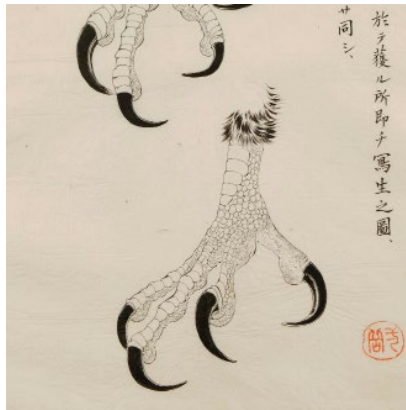 於テ獲ル所即チ寫生之圖、
サ同シ、